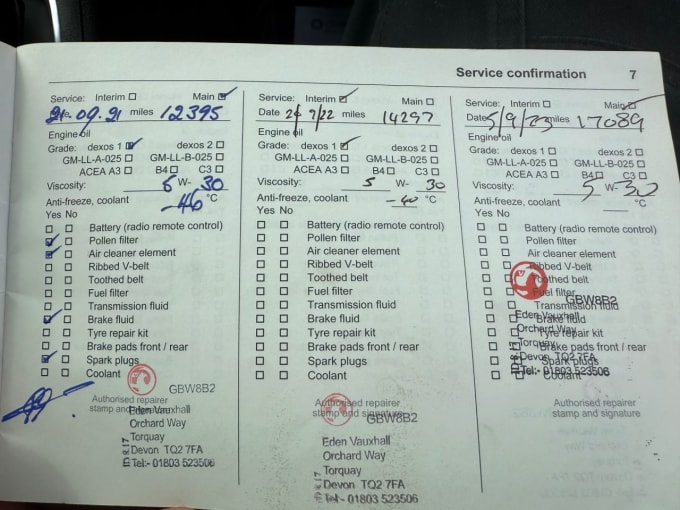 Service confirmation 7
Service: Interim Main
21.09.21 miles 12395
Engine oil
Grade: dexos 1 dexos 2
GM-LL-A-025 GM-LL-B-025
ACEA A3 B4 C3
Viscosity: 5 W- 30
Anti-freeze, coolant -46 °C
Yes No
Battery (radio remote control)
Pollen filter
Air cleaner element
Ribbed V-belt
Toothed belt
Fuel filter
Transmission fluid
Brake fluid
Tyre repair kit
Brake pads front / rear
Spark plugs
Coolant
GBW8B2
Authorised repairer
stamp and
Eden Vauxhall
Orchard Way
Torquay
Devon TQ2 7FA
Tel:- 01803 523506
Service: Interim Main
Date 7/22 miles 14297
Engine oil
Grade: dexos 1 dexos 2
GM-LL-A-025 GM-LL-B-025
ACEA A3 B4 C3
Viscosity: 5 W- 30
Anti-freeze, coolant -40 °C
Yes No
Battery (radio remote control)
Pollen filter
Air cleaner element
Ribbed V-belt
Toothed belt
Fuel filter
Transmission fluid
Brake fluid
Tyre repair kit
Brake pads front / rear
Spark plugs
Coolant
Authorised repairer
stamp and signature
GBW8B2
Eden Vauxhall
Orchard Way
Torquay
Devon TQ2 7FA
Tel:- 01803 523506
Service: Interim Main
Date 5/9/23 miles 17089
Engine oil
Grade: dexos 1 dexos 2
GM-LL-A-025 GM-LL-B-025
ACEA A3 B4 C3
Viscosity: 5 W-30
Anti-freeze, coolant °C
Yes No
Battery (radio remote control)
Pollen filter
Air cleaner element
Ribbed V-belt
Toothed belt
Fuel filter
GBW8B2
Transmission fluid
Eden Vauxhall
Brake fluid
Orchard Way
Tyre repair kit
Torquay
Brake pads front / rear
Devon TQ2 7FA
Spark plugs
Tel:- 01803 523506
Coolant
Authorised repairer
stamp and signature